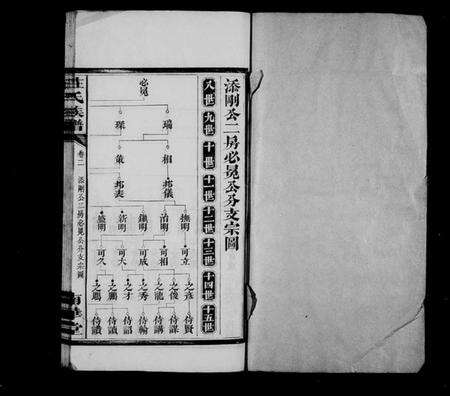 添剛公二房必晃公分支宗圖
八世 九世 十世 十一世 十二世 十三世 十四世 十五世
必晃
瑞 琛
相 策
邦儀 邦表
撫明 治明 鎮明 新明 盛明
可立 可相 可成 可大 可久
之彥 之俊 之龍 之秀 之才 之鵬 之鵾
侍賢 侍謀 侍講 侍輪 侍詔 侍讀 侍讚
氏族譜
卷二
添剛公二房必晃公分支宗圖
堂